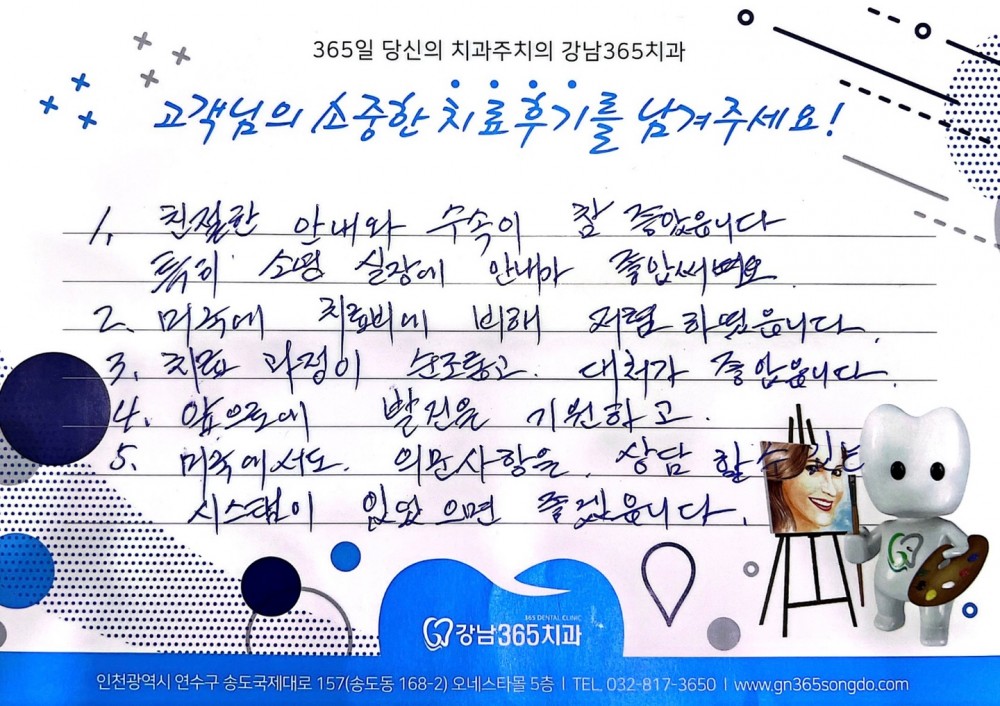 365일 당신의 치과주치의 강남365치과
고객님의 소중한 치료후기를 남겨주세요!
1. 친절한 안내와 수속이 참 좋았읍니다
특히 실장에 안내가 좋았
2. 미국에 치료비에 비해 저렴 하였읍니다.
3. 치료 과정이 순조롭고. 대처가 좋았읍니다.
4. 앞으로에 발전을 기원하고.
5. 미국에서도. 의문사항을. 상담 할수 있는
시스템이 있었으면 좋겠읍니다.
365 DENTAL CLINIC
강남365치과
인천광역시 연수구 송도국제대로 157(송도동 168-2) 오네스타몰 5층 | TEL. 032-817-3650 | www.gn365songdo.com